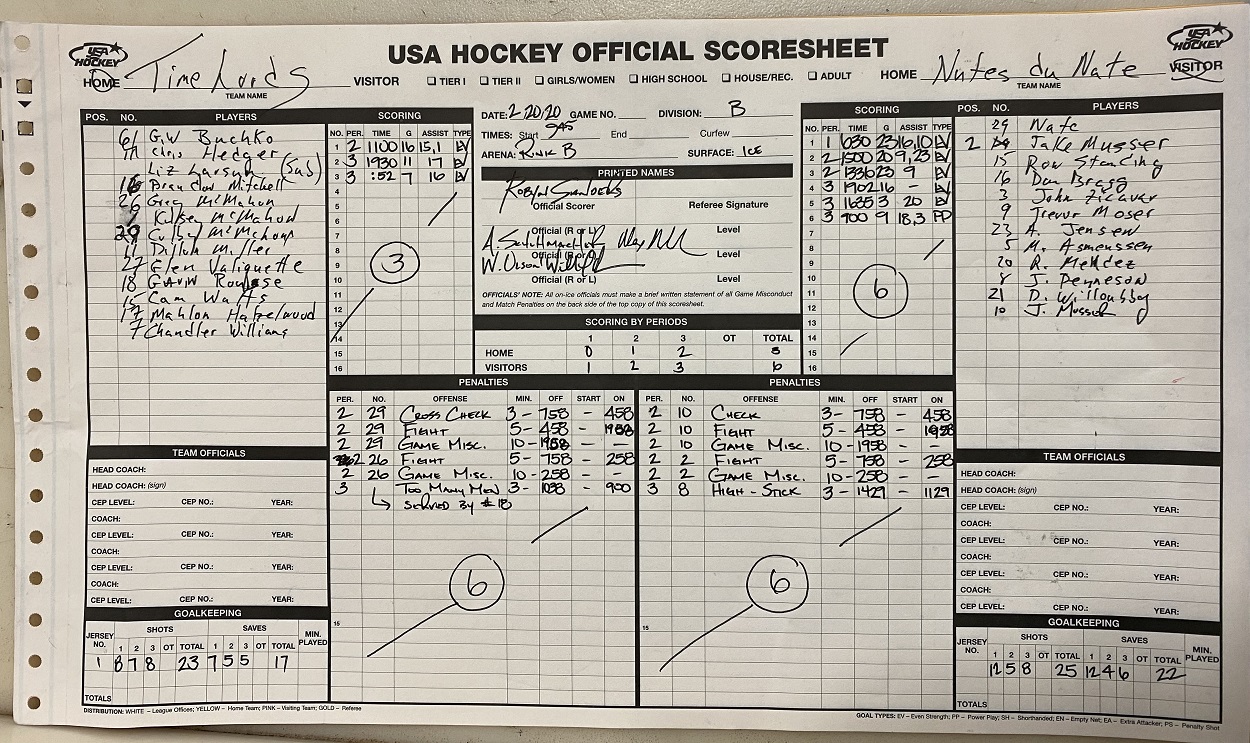 USA HOCKEY OFFICIAL SCORESHEET
USA HOCKEY
USA HOCKEY
HOME Time Lords VISITOR TIER I TIER II GIRLS/WOMEN HIGH SCHOOL HOUSE/REC. ADULT HOME Nutes du Nate VISITOR
TEAM NAME
TEAM NAME
POS. NO. PLAYERS
61 G.W Buchko
Chris Hedger
Liz (Sub)
16 Brandon Mitchell
26 Greg McMahon
Kelsey McMahon
29 Colby McMahon
11 Dillon Miller
27 Glen Valiquette
18 Gavin
15 Cam Watts
17 Mahlon Hazelwood
7 Chandler Williams
SCORING
NO. PER. TIME G ASSIST TYPE
1 2 1100 16 15,1 EV
2 3 1930 11 17 EV
3 3 :52 7 16 EV
4
5
6
7
8
9
10
11
12
13
14
15
16
3
DATE: 2-20-20 GAME NO. DIVISION: B
TIMES: Start 945 End Curfew
ARENA: Rink B SURFACE: ICE
PRINTED NAMES
Robyn
Official Scorer Referee Signature
Official (R or L) Level
A.
Official (R or L) Level
W. Olson
Official (R or L) Level
OFFICIALS' NOTE: All on-ice officials must make a brief written statement of all Game Misconduct
and Match Penalties on the back side of the top copy of this scoresheet.
SCORING BY PERIODS
1 2 3 OT TOTAL
HOME 0 1 2 3
VISITORS 1 2 3 6
SCORING
NO. PER. TIME G ASSIST TYPE
1 1 630 23 16,10 EV
2 2 1500 20 9,23 EV
3 2 1330 23 9 EV
4 3 1902 16 - EV
5 3 1635 3 20 EV
6 3 900 9 18,3 PP
7
8
9
10
11
12
13
14
15
16
6
POS. NO. PLAYERS
29 Nate
2 Jake Musser
15 Row Standing
16 Dan Bragg
3 John Zicaver
9 Trevor Moser
23 A. Jensen
5 M. Asmussen
20 R. Mendez
8 J. Peyneson
21 D. Willoubby
10 J. Musser
PENALTIES
PER. NO. OFFENSE MIN. OFF START ON
2 29 CROSS CHECK 3- 758 - 458
2 29 FIGHT 5- 458 - 1958
2 29 GAME MISC. 10- 1958 - -
2 26 FIGHT 5- 758 - 258
2 26 GAME MISC. 10- 258 - -
3 TOO MANY MEN 3- 1038 - 900
↳ SERVED BY #18
6
15
PENALTIES
PER. NO. OFFENSE MIN. OFF START ON
2 10 CHECK 3- 758 - 458
2 10 FIGHT 5- 458 - 1958
2 10 GAME MISC. 10- 1958 - -
2 2 FIGHT 5- 758 - 258
2 2 GAME MISC. 10- 258 - -
3 8 HIGH-STICK 3- 1429 - 1129
6
15
TEAM OFFICIALS
HEAD COACH:
HEAD COACH: (sign)
CEP LEVEL: CEP NO.: YEAR:
COACH:
CEP LEVEL: CEP NO.: YEAR:
COACH:
CEP LEVEL: CEP NO.: YEAR:
COACH:
CEP LEVEL: CEP NO.: YEAR:
GOALKEEPING
JERSEY NO. SHOTS SAVES MIN. PLAYED
1 2 3 OT TOTAL 1 2 3 OT TOTAL
1 8 7 8 23 7 5 5 17
TOTALS
TEAM OFFICIALS
HEAD COACH:
HEAD COACH: (sign)
CEP LEVEL: CEP NO.: YEAR:
COACH:
CEP LEVEL: CEP NO.: YEAR:
COACH:
CEP LEVEL: CEP NO.: YEAR:
COACH:
CEP LEVEL: CEP NO.: YEAR:
GOALKEEPING
JERSEY NO. SHOTS SAVES MIN. PLAYED
1 2 3 OT TOTAL 1 2 3 OT TOTAL
12 5 8 25 12 4 6 22
TOTALS
DISTRIBUTION: WHITE – League Offices; YELLOW – Home Team; PINK – Visiting Team; GOLD – Referee
GOAL TYPES: EV – Even Strength; PP – Power Play; SH – Shorthanded; EN – Empty Net; EA – Extra Attacker; PS – Penalty Shot